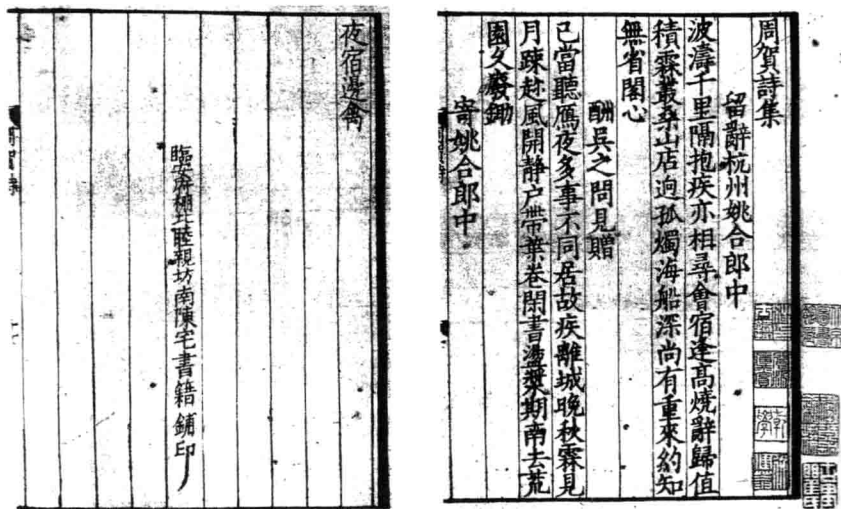 周賀詩集
留辭杭州姚合郎中
波濤千里隔抱疾亦相尋會宿逢高燒辭歸值
積霖叢桑山店迥孤燭海船深尚有重來約知
無省閣心
酬吳之問見贈
已當聽鴈夜多事不同居故疾離城晚秋霖見
月踈趂風開静户帶葉卷閑書盪槳期南去荒
園久廢鋤
寄姚合郎中
夜宿邊禽
臨安府棚北睦親坊南陳宅書籍鋪印